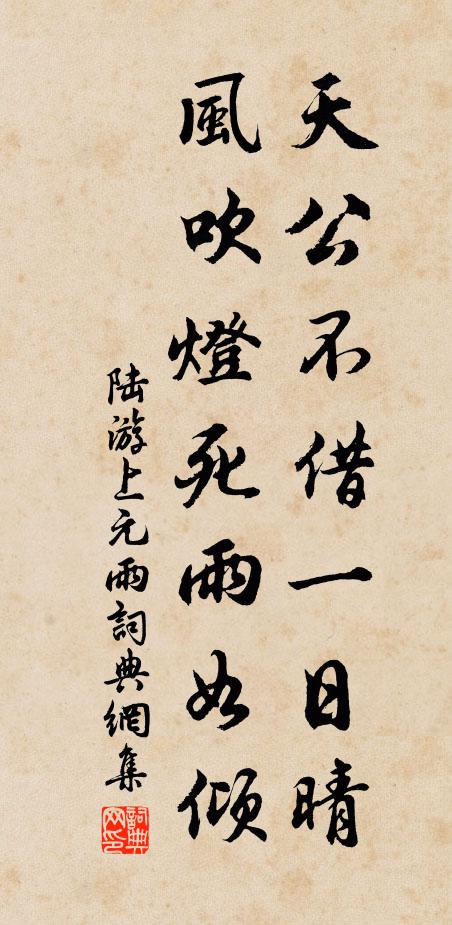 天公不借一日晴
風吹燈死雨如傾
陆游上元雨詞典網集
詞典网印